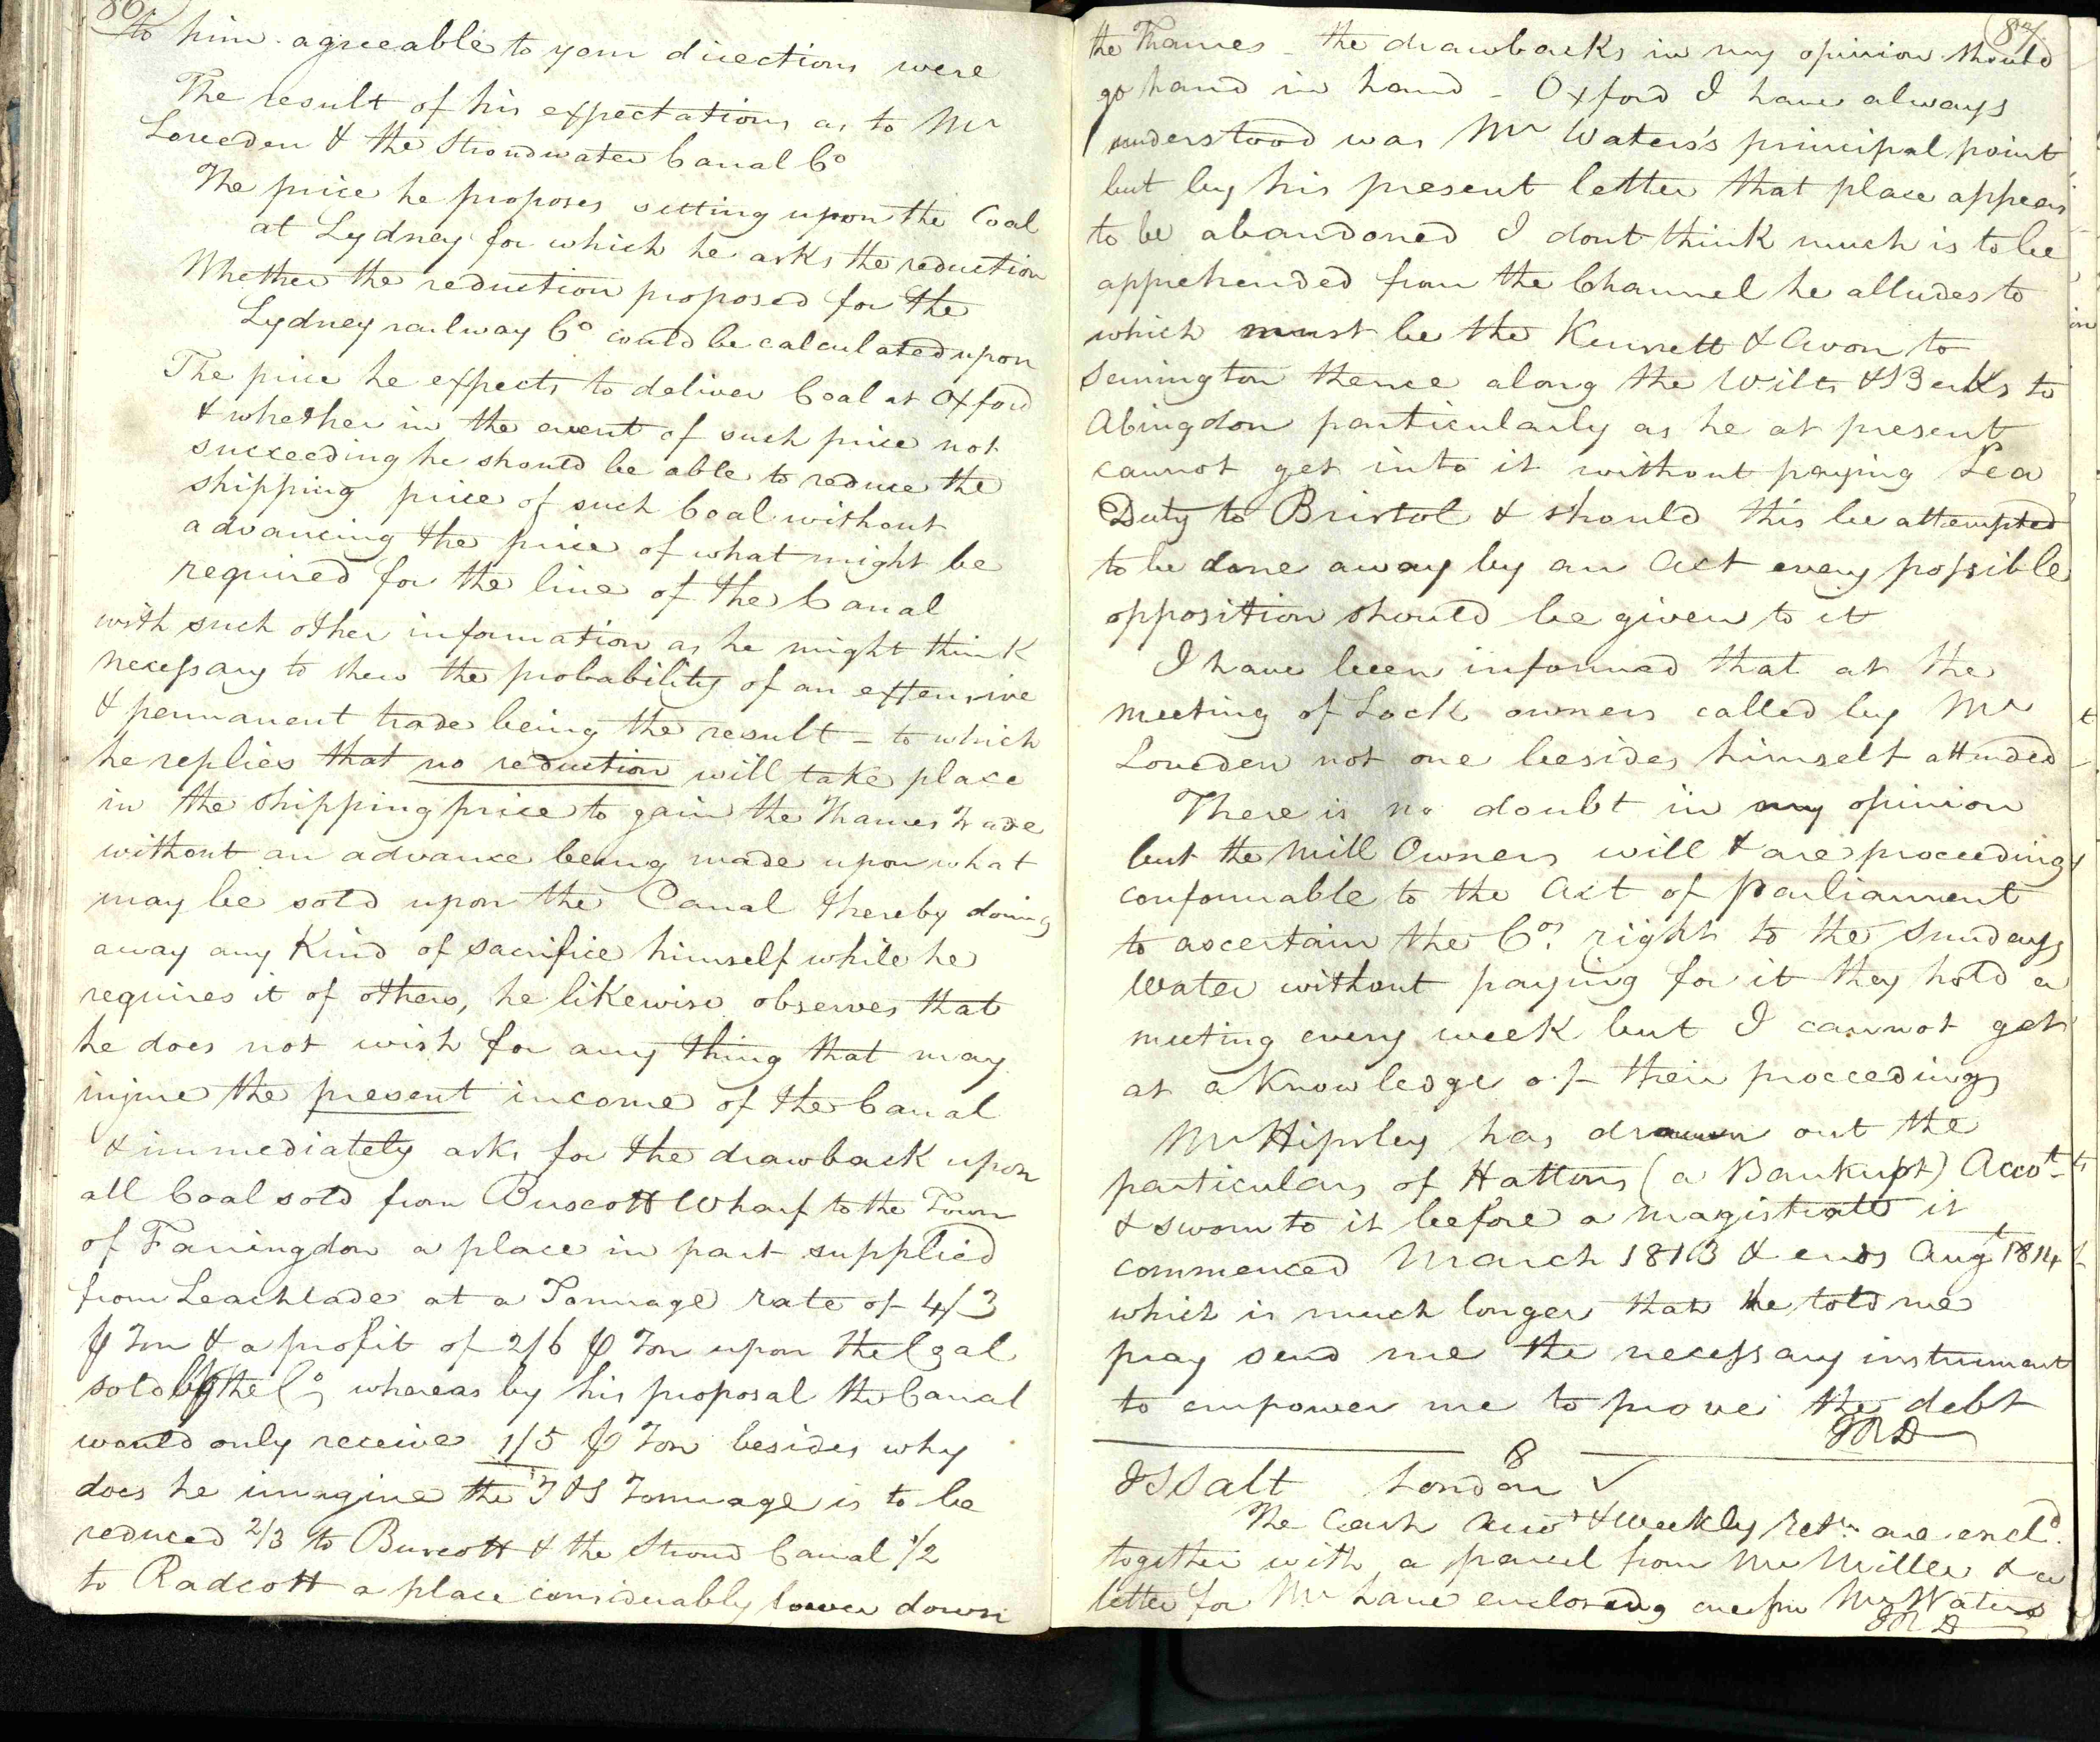 86
to him agreeable to your directions were
The result of his expectations as to Mr
Loveden & the Stroudwater Canal Co
The price he proposes setting upon the Coal
at Lydney for which he asks the reduction
Whether the reduction proposed for the
Lydney railway Co could be calculated upon
The price he expects to deliver Coal at Oxford
& whether in the event of such price not
succeeding he should be able to reduce the
shipping price of such Coal without
advancing the price of what might be
required for the line of the Canal
with such other information as he might think
necessary to shew the probability of an extensive
& permanent trade being the result - to which
he replies that no reduction will take place
in the shipping price to gain the Thames Trade
without an advance being made upon what
may be sold upon the Canal thereby doing
away any Kind of sacrifice himself while he
requires it of others, he likewise observes that
he does not wish for any thing that may
injure the present income of the Canal
& immediately asks for the drawback upon
all Coal sold from Buscott Wharf to the Town
of Farringdon a place in part supplied
from Leachlade at a Tonnage rate of 4/3
⅌ Ton & a profit of 2/6 ⅌ Ton upon the Coal
sold by the Co, whereas by his proposal the Canal
would only receive 1/5 ⅌ Ton besides why
does he imagine the T & S Tonnage is to be
reduced 2/3 to Buscott & the Stroud Canal 1/2
to Radcott a place considerably lower down
87
the Thames - the drawbacks in my opinion should
go hand in hand - Oxford I have always
understood was Mr Waters's principal point
but by his present letter that place appears
to be abandoned I dont think much is to be
apprehended from the Channel he alludes to
which must be the Kennett & Avon to
Semington thence along the Wilts & Berks to
Abingdon particularly as he at present
cannot get into it without paying Sea
Duty to Bristol & should this be attempted
to be done away by an Act every possible
opposition should be given to it
I have been informed that at the
meeting of Lock owners called by Mr
Loveden not one besides himself attended
There is no doubt in my opinion
but the Mill Owners will & are proceeding
conformable to the Act of Parliament
to ascertain the Cos right to the Sundays
Water without paying for it they hold a
meeting every week but I cannot get
at a Knowledge of their proceedings
Mr Hipsley has drawn out the
particulars of Hattons (a Bankupt) Accot
& sworn to it before a Magistrate it
commenced March 1813 & ends Augt 1814
which is much longer that he told me
pray send me the necessary instrument
to empower me to prove the debt
JRD
8
I S Salt London ✓
The Cash Acct & Weekly Retn are encld
together with a parcel from Mr Miller & a
letter for Mr Lane enclosing one for Mr Waters
JRD